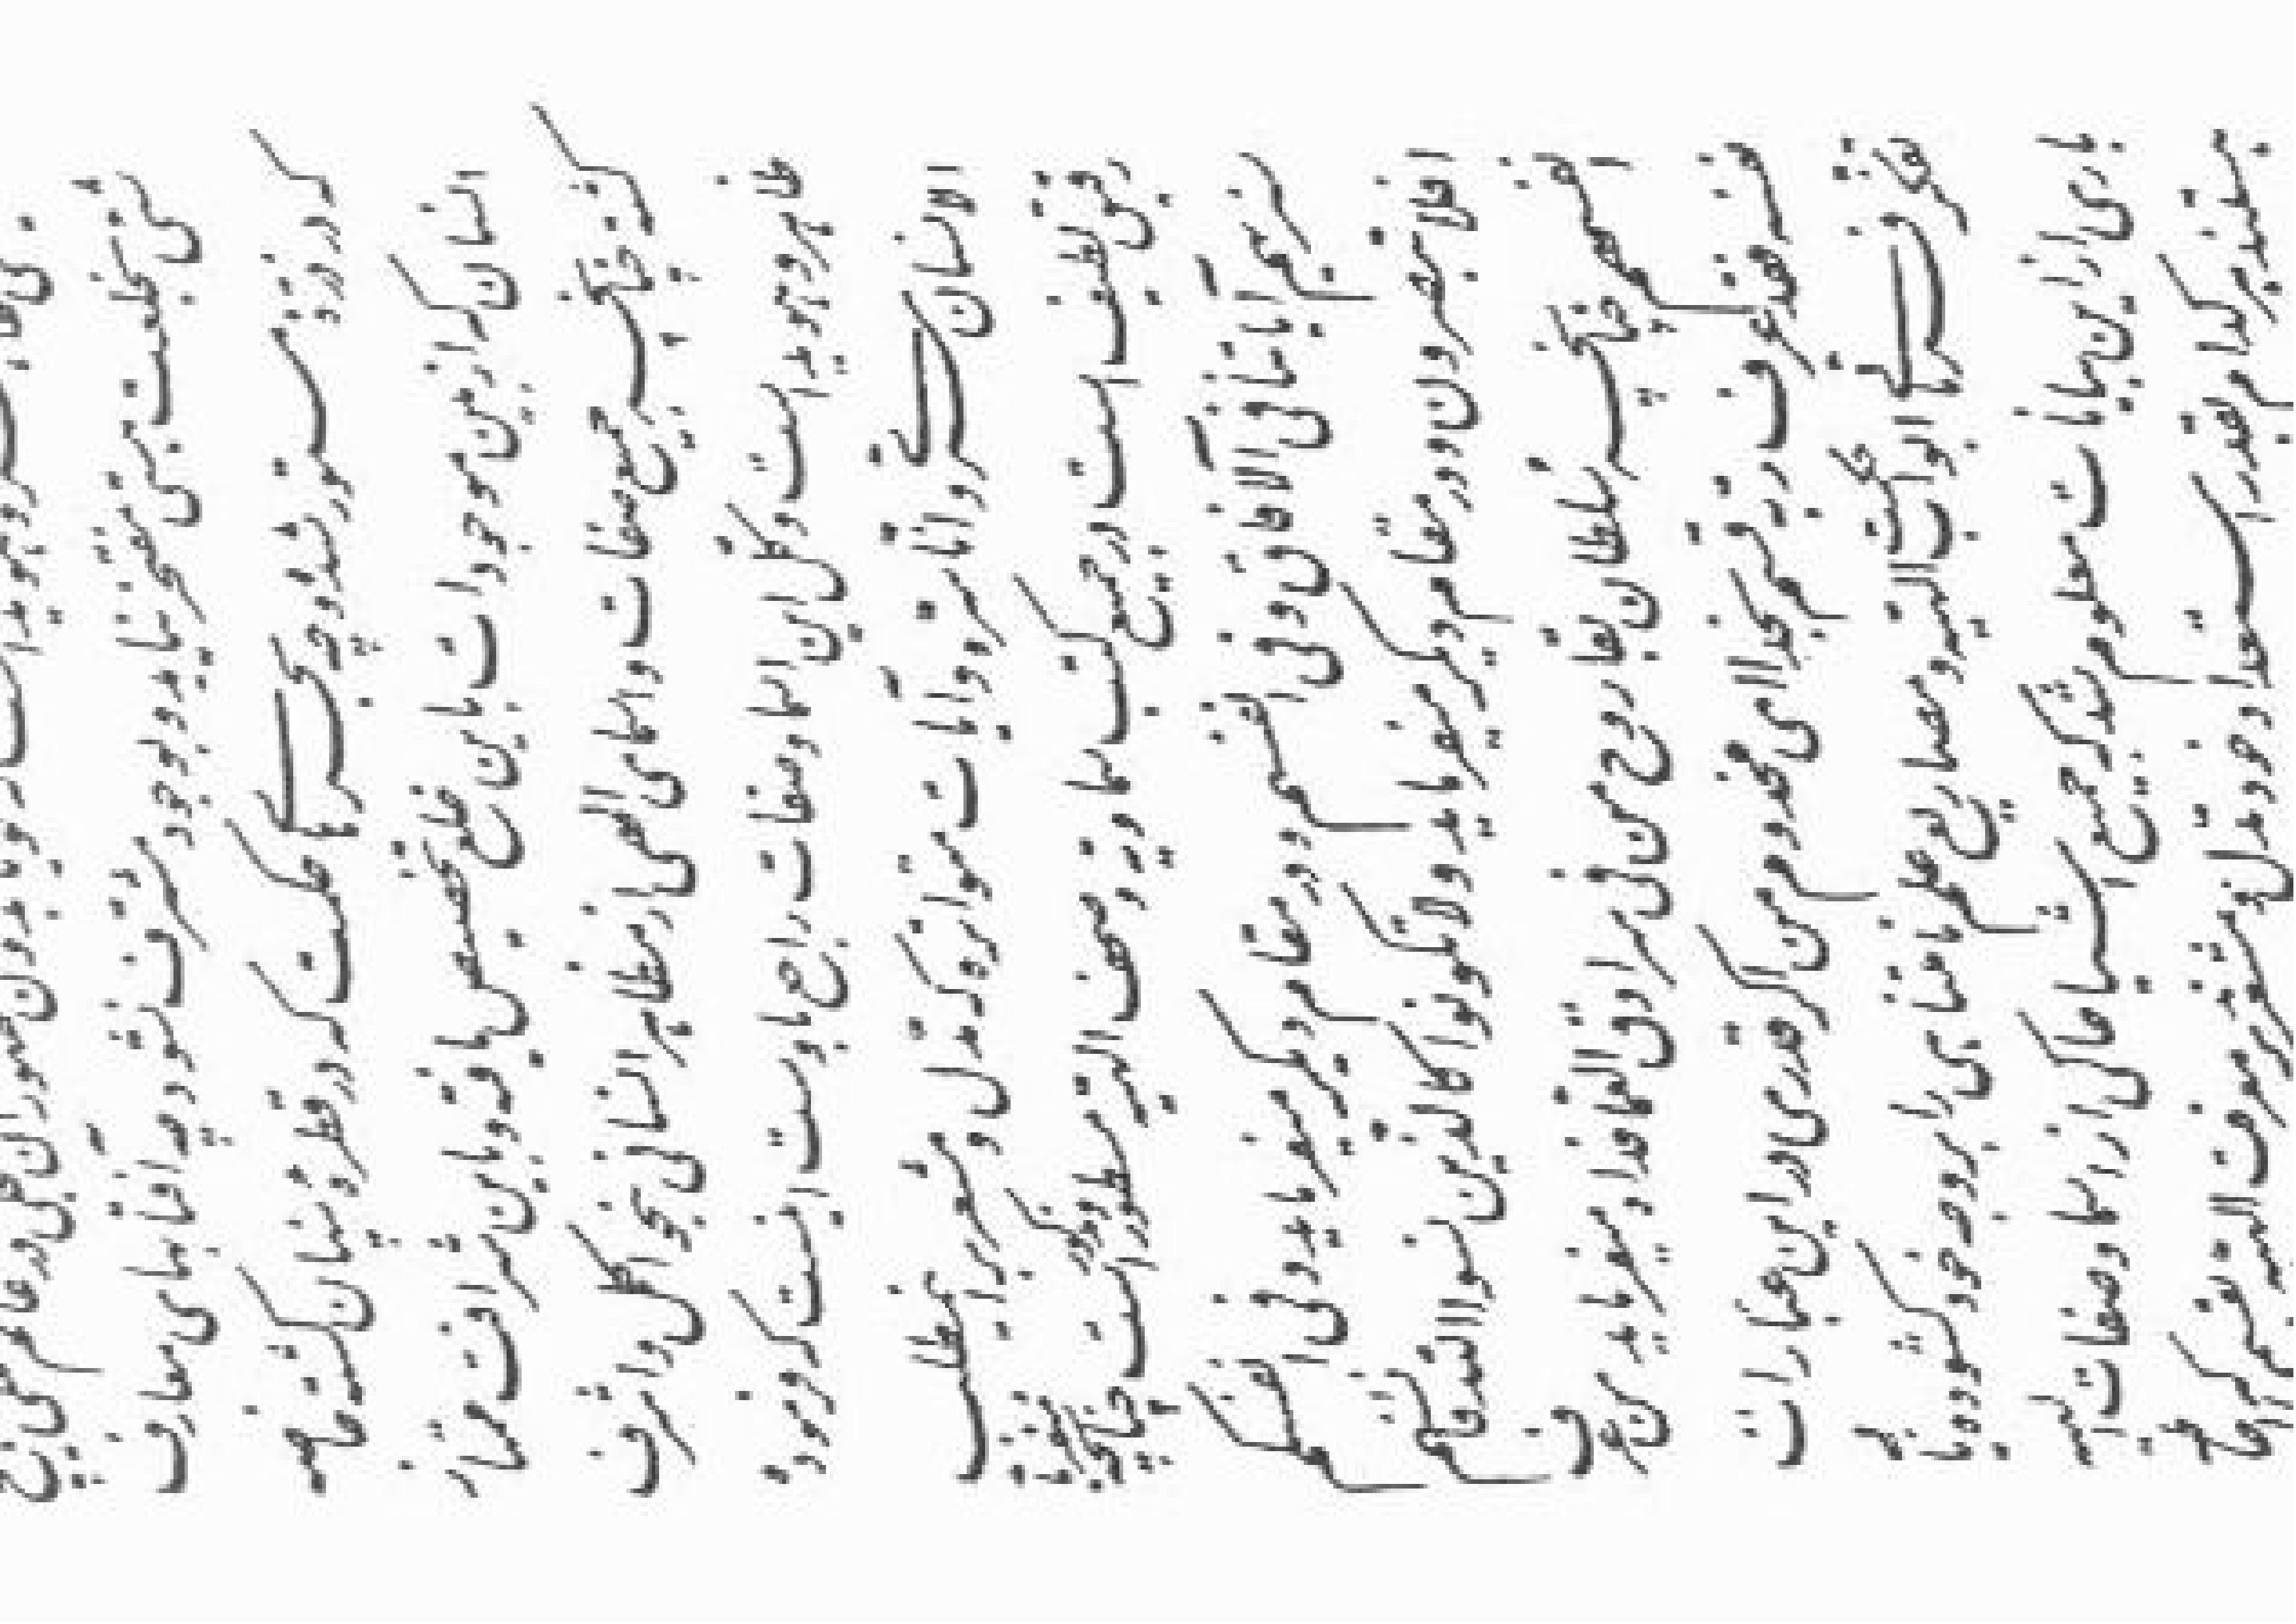 ظاهر و هویدا است که گویا بدون ظهور ان تجلی در عالم ملکی هیچ
شئی بخلعت هستی مفتخر نیاید و بوجود مشرف نشود چه افتابهای معارف
که در ذره مستور شده و چه بحرهای حکمت که در قطره پنهان گشته خاصه
انسان که از بین موجودات باین خلع تخصیص یافته و باین شرافت ممتاز
گشته چنانچه جمیع صفات و اسمای الهی از مظاهر انسانی بنحو اکمل و اشرف
ظاهر و هویدا است و کل این اسما و صفات راجع باوست اینست که فرموده
الانسان سری و انا سره و آیات متواتره که مدل و مشعر براین مطلب
رقیق لطیف است در جمیع کتب سماویه و صحف الهیه مسطور و مذکور است چنانچه میفرماید
سنریهم آیاتنا فی الآفاق و فی انفسهم و در مقام دیگر میفرماید و فی انفسکم
افلا تبصرون و در مقام دیگر میفرماید و لا تکونوا کالذین نسوا الله فانساهم
انفسهم چنانچه سلطان بقا روح من فی سرادق العما فداه میفرماید من عرف
نفسه فقد عرف ربه قسم بخدا ای مخدوم من اگر قدری در این عبارات
تفکر فرمائی ابواب حکمت الهیه و مصاریع علم نامتناهی را بروجه خود گشوده یابی
باری از این بیانات معلوم شد که جمیع اشیا حاکی از اسما و صفات الهیه
هستند هر کدام بقدر استعداد خود مدل و مشعرند بر معرفت الهیه